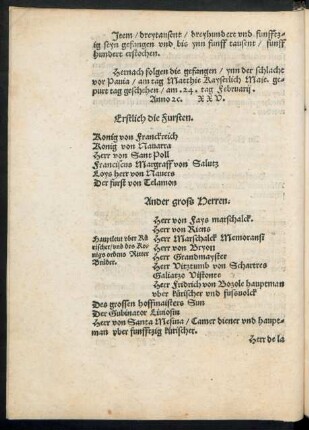 Item / dreytausent / dreyhundert vnd funffze,
ig seyn gefangen vnd bis ynn funff tausent / funff
hundert erstochen.
Hernach folgen die gefangen / ynn der schlacht
vor Pauia / am tag Matthie Kayserlich Maie. ge,
purt tag geschehen / am .24. tag Februarij.
Anno ꝛc. XXV.
Erstlich die Fursten.
Konig von Franckreich
Konig von Nauarra
Herr von Sant Poll
Franciscus Margraff von Salutz
Loys herr von Nauers
Der furst von Telamon
Ander gross Herren.
Herr von Fays marschalck.
Herr von Riens
Hauptleut vber Kü
rischer / vnd des Ko
nigs ordens Ritter
Brüder.
Herr Marschalck Memoransi
Herr von Bryon
Herr Grandmayster
Herr Vitztumb von Schartres
Galiatzo Viskonte
Herr Fridrich von Bozole hauptman
vber kürischer vnd fusuolck
Des grossen hoffmaisters Sun
Der Gubinator Limosin
Herr von Santa Mesina / Camer diener vnd haupt,
man vber funfftzig kürischer.
Herr de la